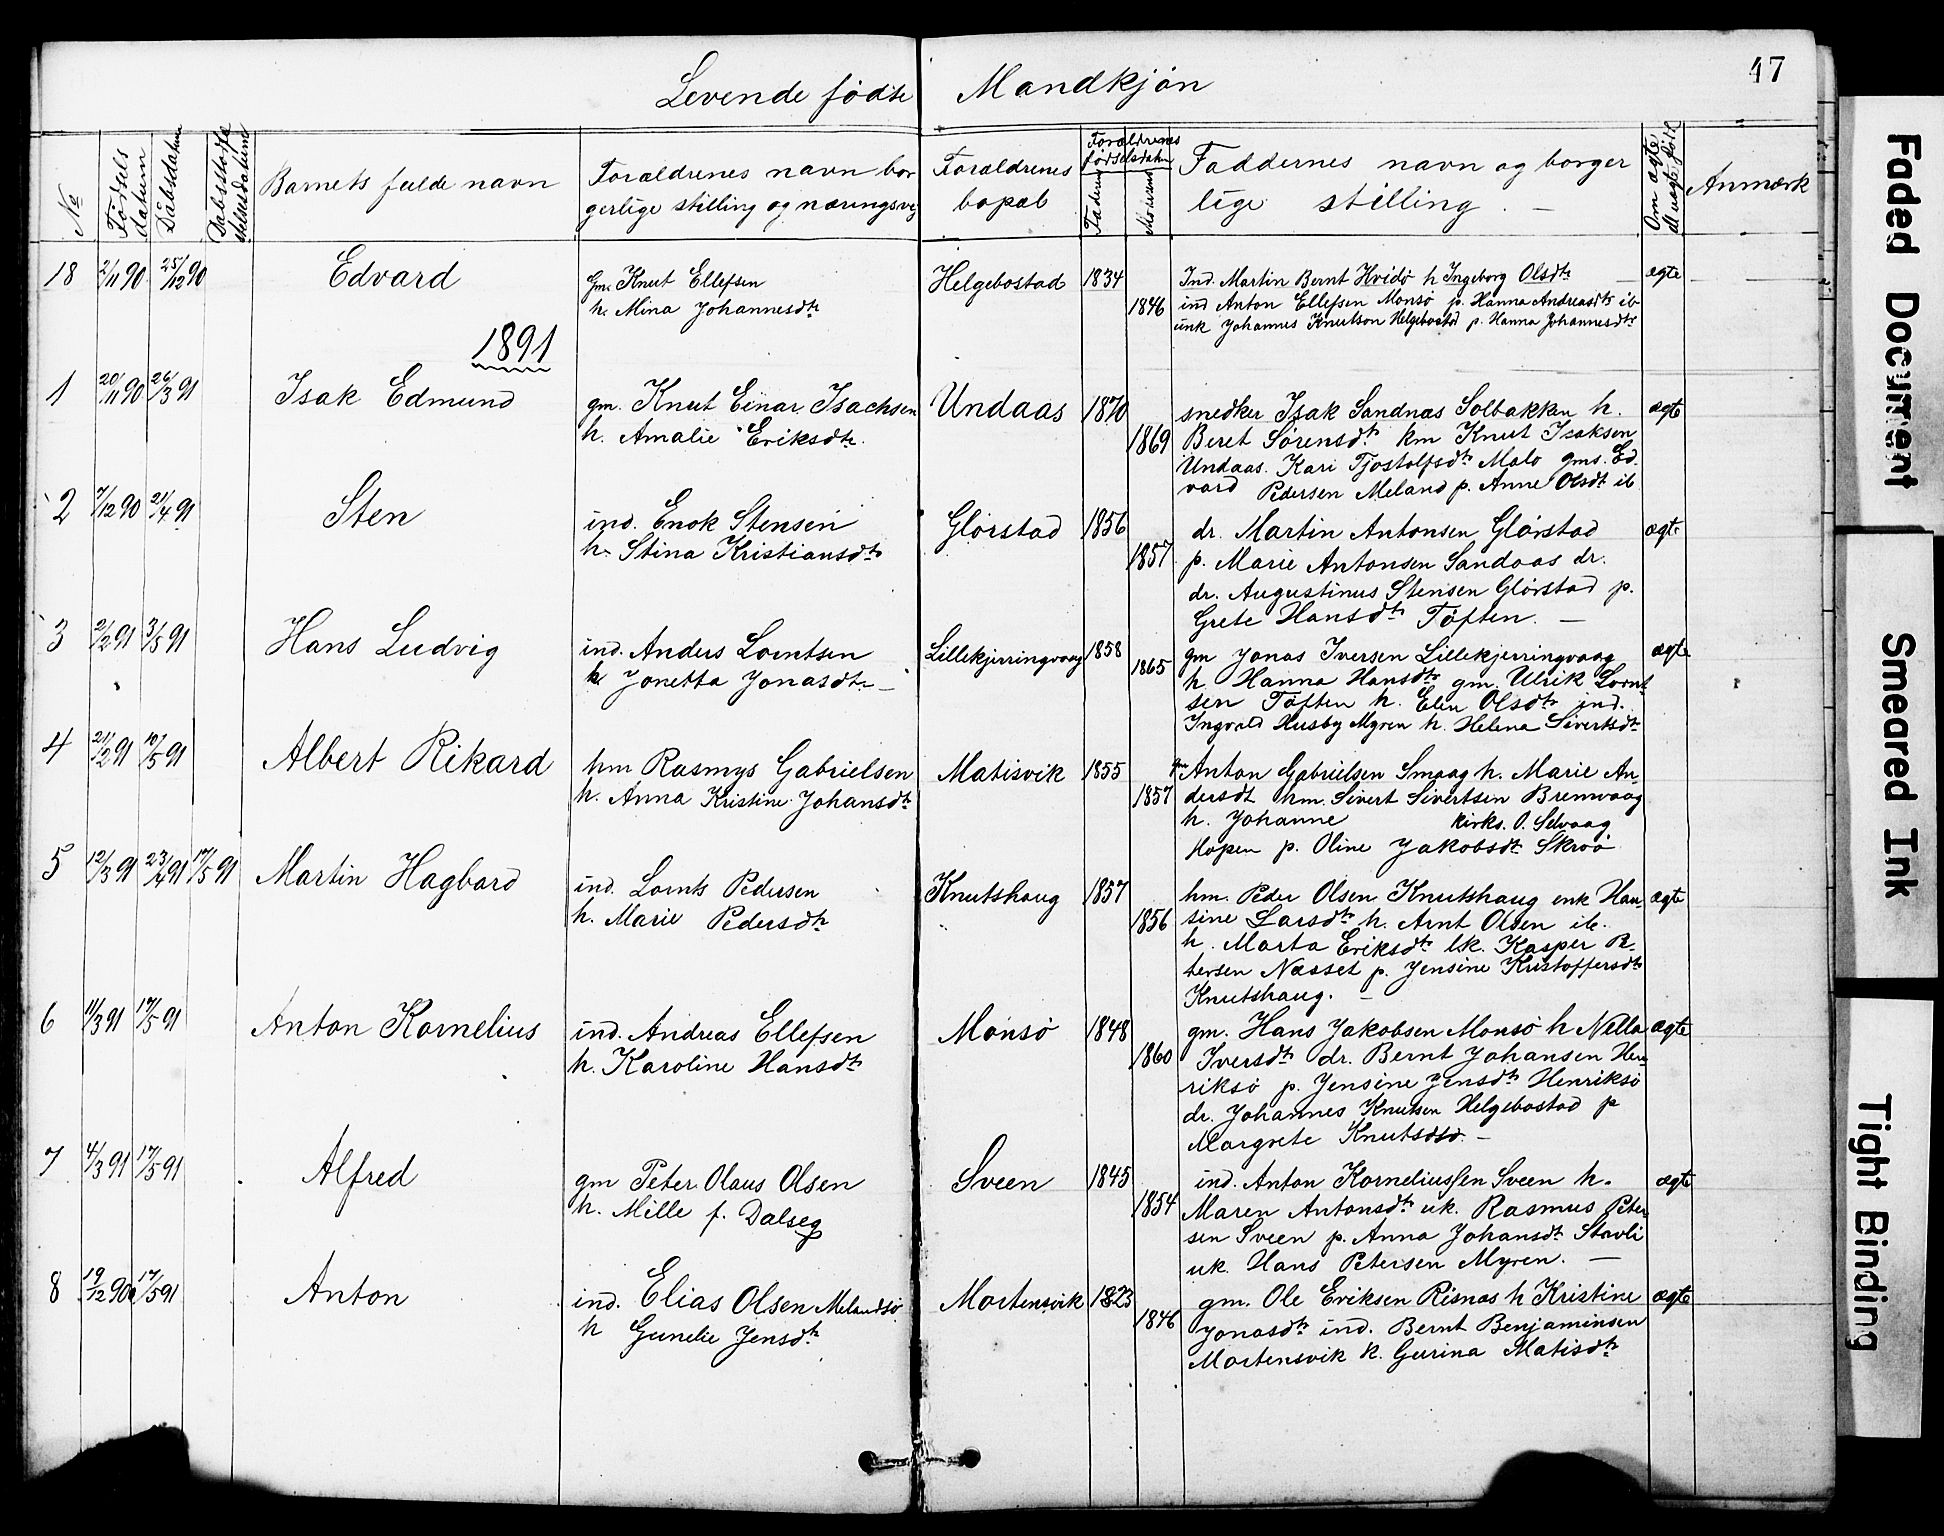 Levende fødte Mandkjøn
47
No
Fødsels datum
Dåbsdatum
Dåbsstedfæstelsesdatum
Barnets fulde navn
Forældrenes navn bor
gerlige stilling og næringsvei
Forældrenes
bopæl
Forældrenes
fødselsdatum
Faderens
Moderens
Faddernes navn og borger
lige stilling. —
Om ægte el. uægte født
Anmærk
18 2/11 90 25/12 90 Edvard
Gm. Knut Ellefsen
h. Mina Johannesdtr
Helgebostad 1834
1846
Ind. Martin Bernt Hvidø h Ingeborg Olsdtr
ind Anton Ellefsen Monsø p. Hanna Andreasdtr ib
unk Johannes Knutson Helgebostad p. Hanna Johannesdtr
ægte
1891
1 20/11 90 26/3 91 Isak Edmund
gm. Knut Einar Isachsen
h. Amalie Eriksdtr.
Undaas 1870
1869
snedker Isak Sandnæs Solbakken h.
Beret Sørensdtr km Knut Isaksen
Undaas. Kari Tjostolfsdtr Malo gms. Ed
vard Pedersen Meland p. Anne Olsdt ib
ægte
2 7/12 90 21/4 91 Sten
ind. Enok Stensen
h. Stina Kristiansdtr
Glørstad 1856
1857
dr. Martin Antonsen Glørstad
p. Marie Antonsen Sandaas dr.
dr. Augustinus Stensen Glørstad p.
Grete Hansdtr Tøften. —
ægte
3 2/2 91 3/5 91 Hans Ludvig
ind. Anders Lorntsen
h Jonetta Jonasdtr —
Lillekjerringvaag 1858
1865
gm Jonas Iversen Lillekjerringvaag
h Hanna Hansdtr gm. Ulrik Lornt
sen Tøften h. Elen Olsdtr ind.
Ingvald Husby Myren h. Helena Sivertsdtr
ægte
4 21/2 91 10/5 91 Albert Rikard
hm Rasmus Gabrielsen
h. Anna Kristine Johansdtr
Matisvik 1855
1857
gm Anton Gabrielsen Smaag h. Marie An
dersdt hm. Sivert Sivertsen Brenvaag
h. Johanne kirks. O. Selvaag
Hopen p. Oline Jakobsdtr Skroø
5 12/3 91 23/4 91 17/5 91 Martin Hagbard
ind. Lornts Pedersen
h. Marie Pedersdtr
Knutshaug 1857
1856
hm. Peder Olsen Knutshaug enk Han
sine Larsdtr h. Arnt Olsen ib.
h. Marta Eriksdtr lk. Kasper P.
tersen Næsset p. Jensine Kristoffersdtr
Knutshaug. —
ægte
6 11/3 91 17/5 91 Anton Kornelius
ind. Andreas Ellefsen
h. Karoline Hansdtr
Monsø 1848
1860
gm. Hans Jakobsen Monsø h Nella
Iversdtr dr. Bernt Johansen Hen
riksø p. Jensine Jensdtr Henriksø
dr. Johannes Knutsen Helgebostad p
Margrete Knutsdtr. —
ægte
7 4/3 91 17/5 91 Alfred
gm Peter Olaus Olsen
h. Mille f. Dalseg
Sveen 1845
1854
ind. Anton Korneliussen Sveen h.
Maren Antonsdtr uk. Rasmus Peter
sen Sveen p. Anna Johansdtr Stavli
uk. Hans Petersen Myren. —
ægte
8 19/12 90 17/5 91 Anton
ind. Elias Olsen Melandsø
h Gunelie Jensdtr
Mortensvik 1823
1846
gm. Ole Eriksen Risnæs h Kristine
Jonasdtr ind. Bernt Benjaminsen
Mortensvik h. Gurina Matisdtr
ægte
Faded Document
Smeared Ink
Tight Binding